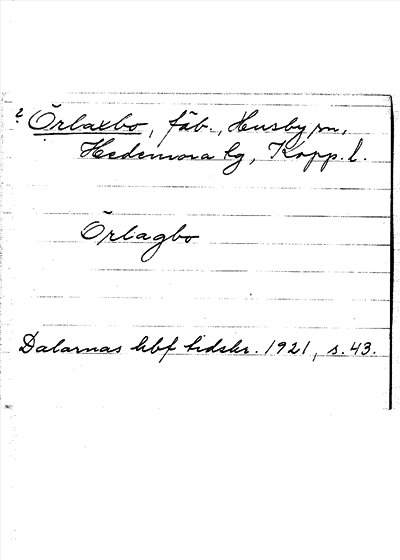 ? Örlaxbo, fäb., Husby sn,
Hedemora tg, Kopp. l.
Örlagbo
Dalarnas hbf tidskr. 1921, s. 43.